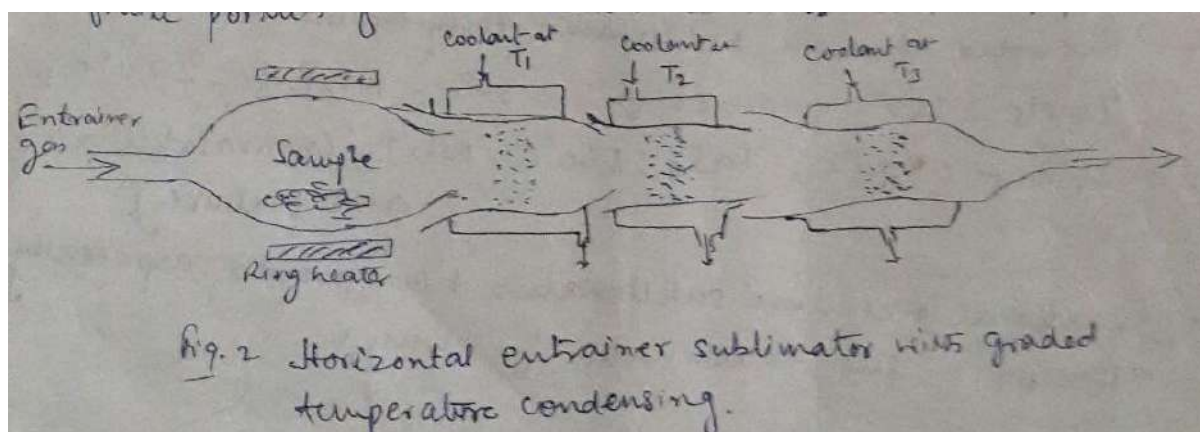 coolant at
T1
coolant at
T2
coolant at
T3
Entrainer
gas
Sample
Ring heater
Fig. 2 Horizontal entrainer sublimator with graded
temperature condensing.